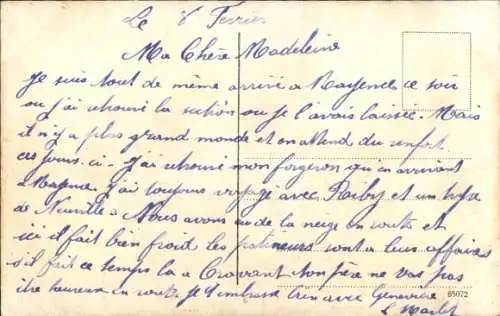 Le 8 Fevrier
Ma Chère Madeleine
Je suis tout de même arrivé a Mayence ce soir
ou j'ai retrouvé la section ou je l'avais laissée. Mais
il n'y a plus grand monde et on attend du renfort
ces jours-ci. J'ai retrouvé mon forgeron qu'en arrivant
a Mayence. J'ai toujours voyagé avec et un type
de Neuville. Nous avons eu de la neige en route et
ici il fait bien froid les patineurs sont a leur affaires
s'il fait ce temps la a Cravant ton père ne vas pas
être heureux en route. Je t'embrasse bien avec Geneviève
65072